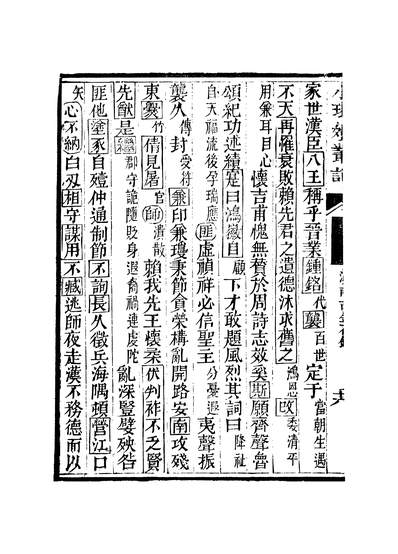 家世漢臣八王稱乎晉業鍾銘代襲百世定于當朝生遇
不天再罹衰敗賴先君之遺德沐求舊之鴻恩改委清平
用兼耳目心懷吉甫愧無贊於周詩志效奚斯願齊聲魯
頌紀功述績寔曰鴻徽自顧下才敢題風烈其詞曰降祉
自天福流後孕瑞應匪虛禎祥必信聖主分憂遐夷聲振
襲久傳封受符兼印兼瓊秉節貪榮構亂開路安南攻殘
東爨竹倩見屠官師潰散賴我先王懷柔伏叛祚不乏賢
先猷是郡守詭隨貶身遐裔禍連虔陀亂深豎嬖殃咎
匪他塗豕自殪仲通制節不詢長久徵兵海隅頓營江口
矢心不納白刃相守謀用不臧逃師夜走漢不務德而以